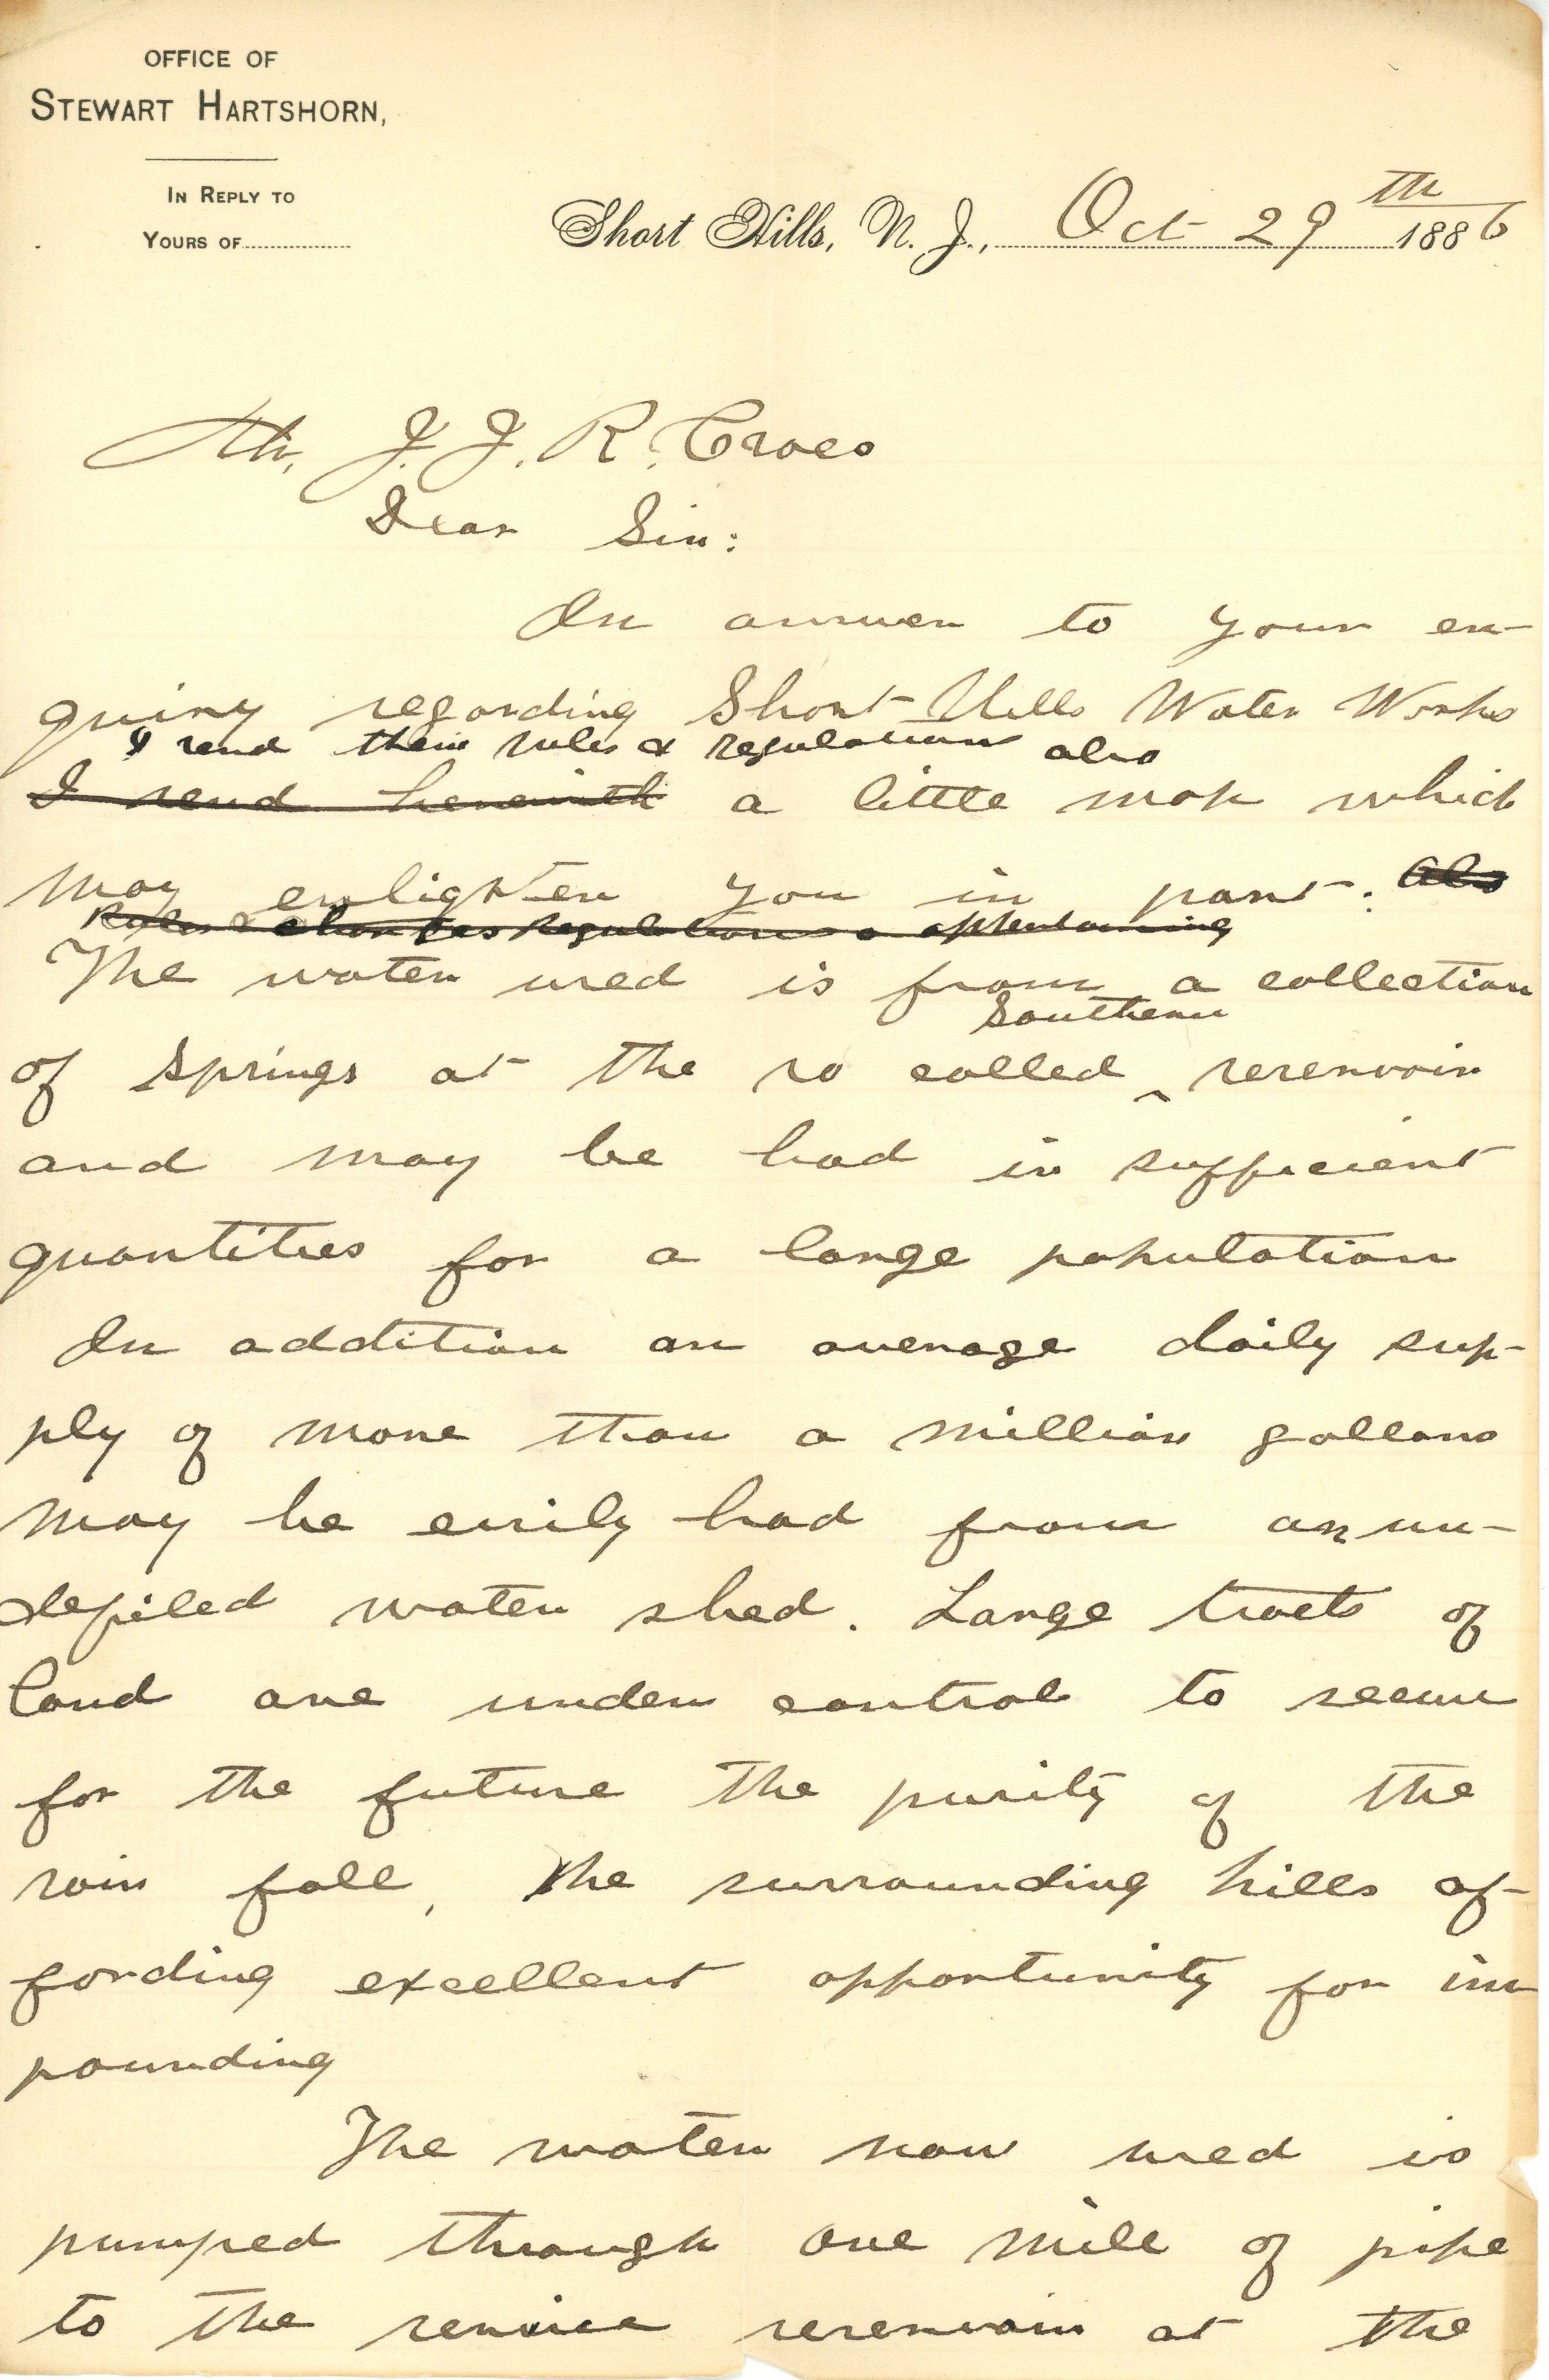 OFFICE OF
STEWART HARTSHORN,
IN REPLY TO
YOURS OF
Short Hills, N. J., Oct 29th 1886
Mr. J. J. R. Croes
Dear Sir:
In answer to your en-
quiry regarding Short Hills Water Works
I send their rules & regulations also
I send herewith a little map which
may enlighten you in part. Also
Rules & charges regulations appertaining
The water used is from a collection
Southern
of springs at the so called ^ reservoir
and may be had in sufficient
quantities for a large population
In addition an average daily sup-
ply of more than a million gallons
may be easily had from an un-
defiled water shed. Large tracts of
land are under control to secure
for the future the purity of the
rain fall, the surrounding hills af-
fording excellent opportunity for im
pounding
The water now used is
pumped through one mile of pipe
to the service reservoir at the